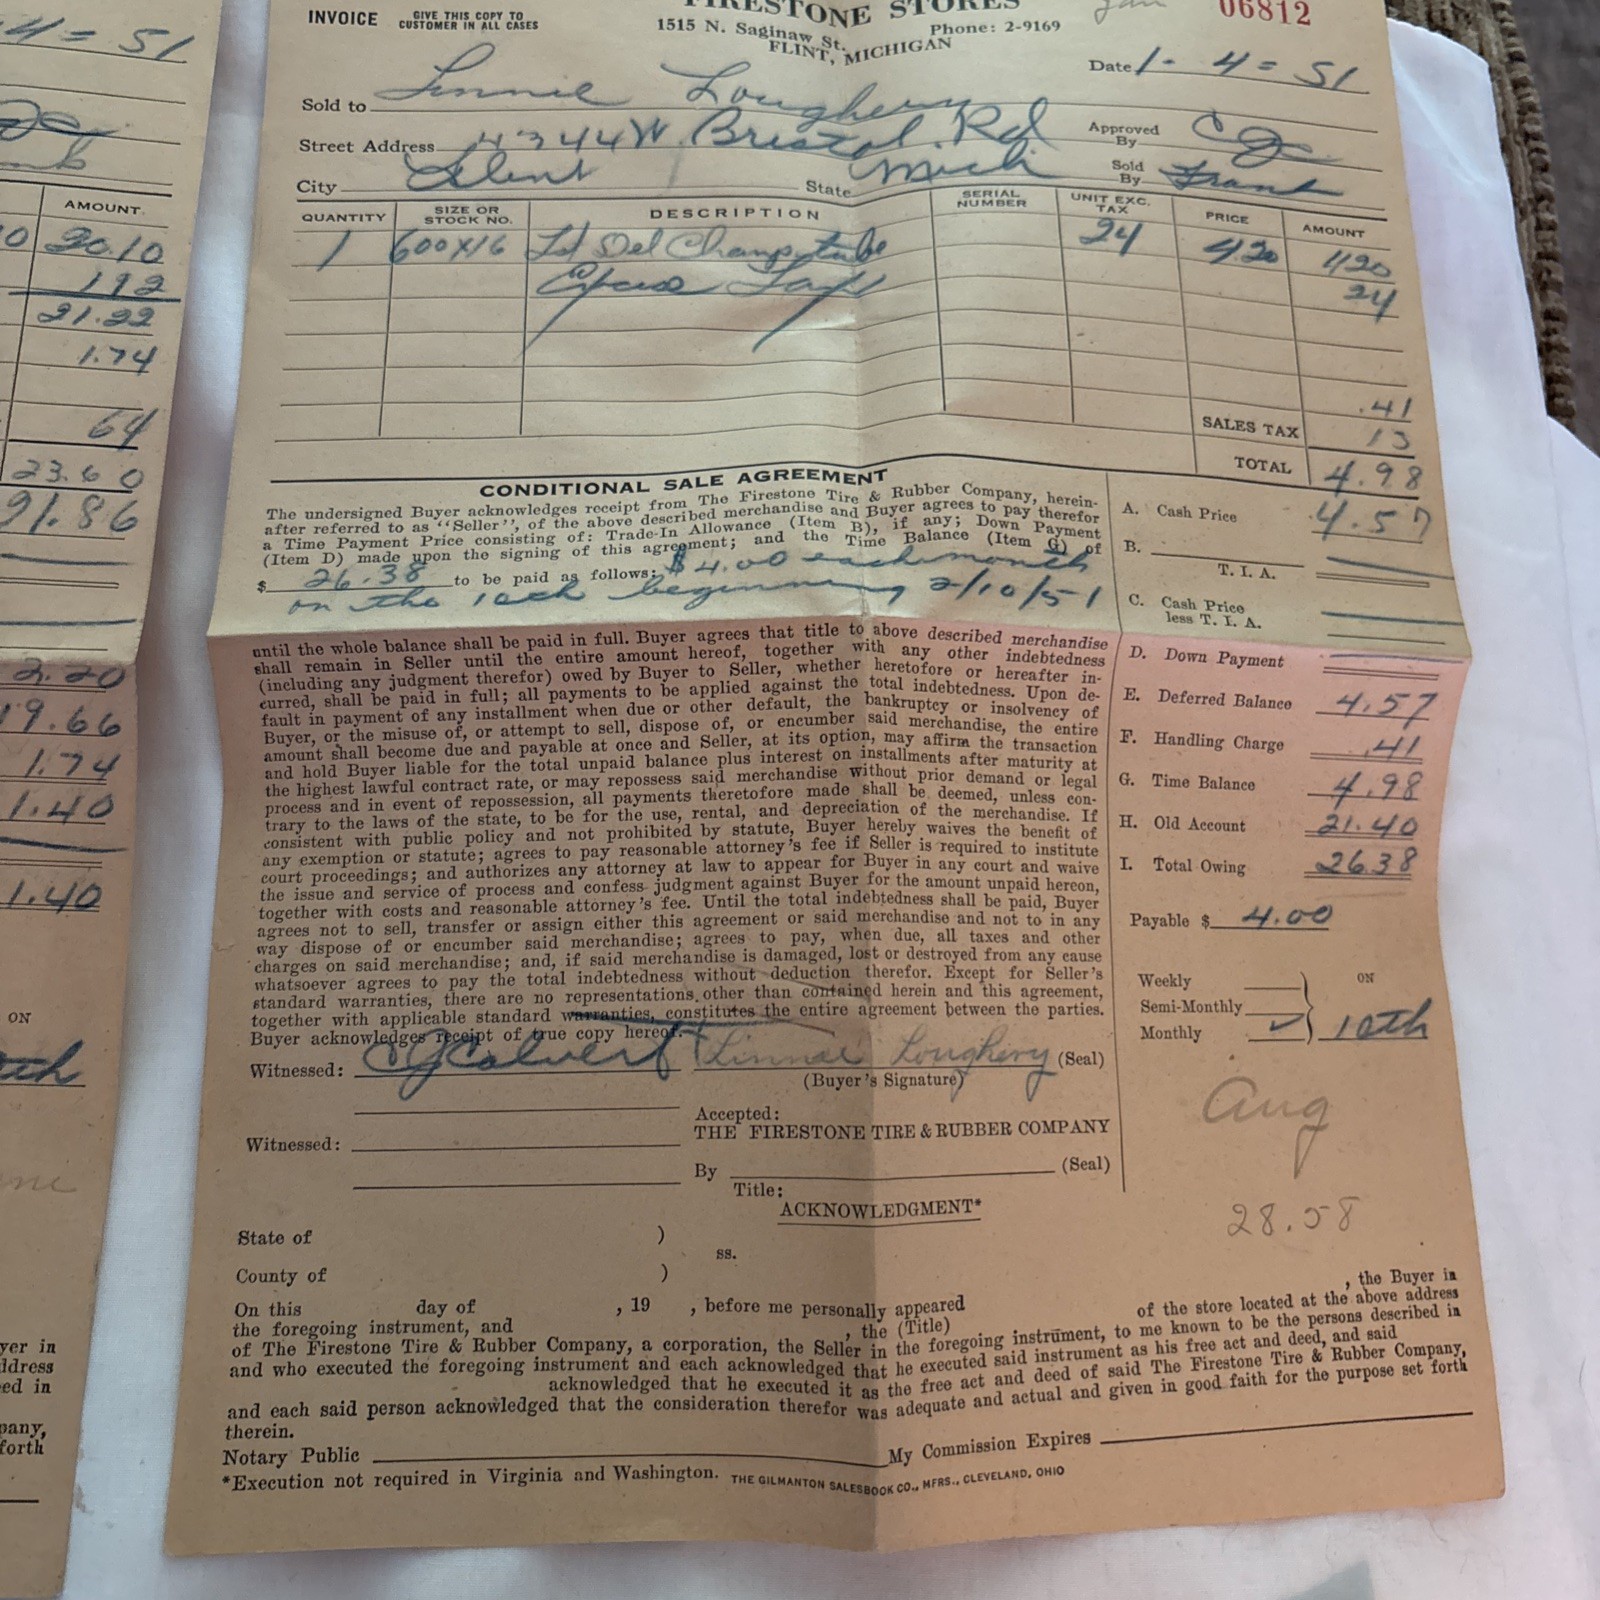 4 = 51
20.10
192
21.22
1.74
64
23.60
91.86
2.20
19.66
1.74
1.40
1.40
ON
yer in
ddress
ed in
pany,
forth
INVOICE GIVE THIS COPY TO CUSTOMER IN ALL CASES
FIRESTONE STORES
Jan 06812
1515 N. Saginaw St. Phone: 2-9169
FLINT, MICHIGAN
Date 1 - 4 = 51
Sold to Linnie Loughery
Street Address 4344 W. Bristol Rd Approved By CJC
City Flint State Mich Sold By Frank
QUANTITY SIZE OR STOCK NO. DESCRIPTION SERIAL NUMBER UNIT EXC. TAX PRICE AMOUNT
1 600x16 Del Champ tube 24 4.20 420
Excise Tax 24
.41
SALES TAX 13
TOTAL 4.98
CONDITIONAL SALE AGREEMENT
The undersigned Buyer acknowledges receipt from The Firestone Tire & Rubber Company, herein-
after referred to as "Seller", of the above described merchandise and Buyer agrees to pay therefor
a Time Payment Price consisting of: Trade-In Allowance (Item B), if any; Down Payment
(Item D) made upon the signing of this agreement; and the Time Balance (Item G) of
$ 26.38 to be paid as follows: $4.00 each month
on the 10th beginning 2/10/51
until the whole balance shall be paid in full. Buyer agrees that title to above described merchandise
shall remain in Seller until the entire amount hereof, together with any other indebtedness
(including any judgment therefor) owed by Buyer to Seller, whether heretofore or hereafter in-
curred, shall be paid in full; all payments to be applied against the total indebtedness. Upon de-
fault in payment of any installment when due or other default, the bankruptcy or insolvency of
Buyer, or the misuse of, or attempt to sell, dispose of, or encumber said merchandise, the entire
amount shall become due and payable at once and Seller, at its option, may affirm the transaction
and hold Buyer liable for the total unpaid balance plus interest on installments after maturity at
the highest lawful contract rate, or may repossess said merchandise without prior demand or legal
process and in event of repossession, all payments theretofore made shall be deemed, unless con-
trary to the laws of the state, to be for the use, rental, and depreciation of the merchandise. If
consistent with public policy and not prohibited by statute, Buyer hereby waives the benefit of
any exemption or statute; agrees to pay reasonable attorney's fee if Seller is required to institute
court proceedings; and authorizes any attorney at law to appear for Buyer in any court and waive
the issue and service of process and confess judgment against Buyer for the amount unpaid hereon,
together with costs and reasonable attorney's fee. Until the total indebtedness shall be paid, Buyer
agrees not to sell, transfer or assign either this agreement or said merchandise and not to in any
way dispose of or encumber said merchandise; agrees to pay, when due, all taxes and other
charges on said merchandise; and, if said merchandise is damaged, lost or destroyed from any cause
whatsoever agrees to pay the total indebtedness without deduction therefor. Except for Seller's
standard warranties, there are no representations other than contained herein and this agreement,
together with applicable standard warranties, constitutes the entire agreement between the parties.
Buyer acknowledges receipt of true copy hereof.
Witnessed: CJ Calvert Linnie Loughery (Seal)
(Buyer's Signature)
Accepted:
THE FIRESTONE TIRE & RUBBER COMPANY
Witnessed:
By (Seal)
Title:
A. Cash Price 4.57
B.
T. I. A.
C. Cash Price less T. I. A.
D. Down Payment
E. Deferred Balance 4.57
F. Handling Charge .41
G. Time Balance 4.98
H. Old Account 21.40
I. Total Owing 26.38
Payable $ 4.00
Weekly ON
Semi-Monthly
Monthly ✓ 10th
Aug
28.58
ACKNOWLEDGMENT*
State of )
ss.
County of )
On this day of , 19 , before me personally appeared , the Buyer in
the foregoing instrument, and , the (Title) of the store located at the above address
of The Firestone Tire & Rubber Company, a corporation, the Seller in the foregoing instrument, to me known to be the persons described in
and who executed the foregoing instrument and each acknowledged that he executed said instrument as his free act and deed, and said
acknowledged that he executed it as the free act and deed of said The Firestone Tire & Rubber Company,
and each said person acknowledged that the consideration therefor was adequate and actual and given in good faith for the purpose set forth
therein.
Notary Public My Commission Expires
*Execution not required in Virginia and Washington. THE GILMANTON SALESBOOK CO., MFRS., CLEVELAND, OHIO